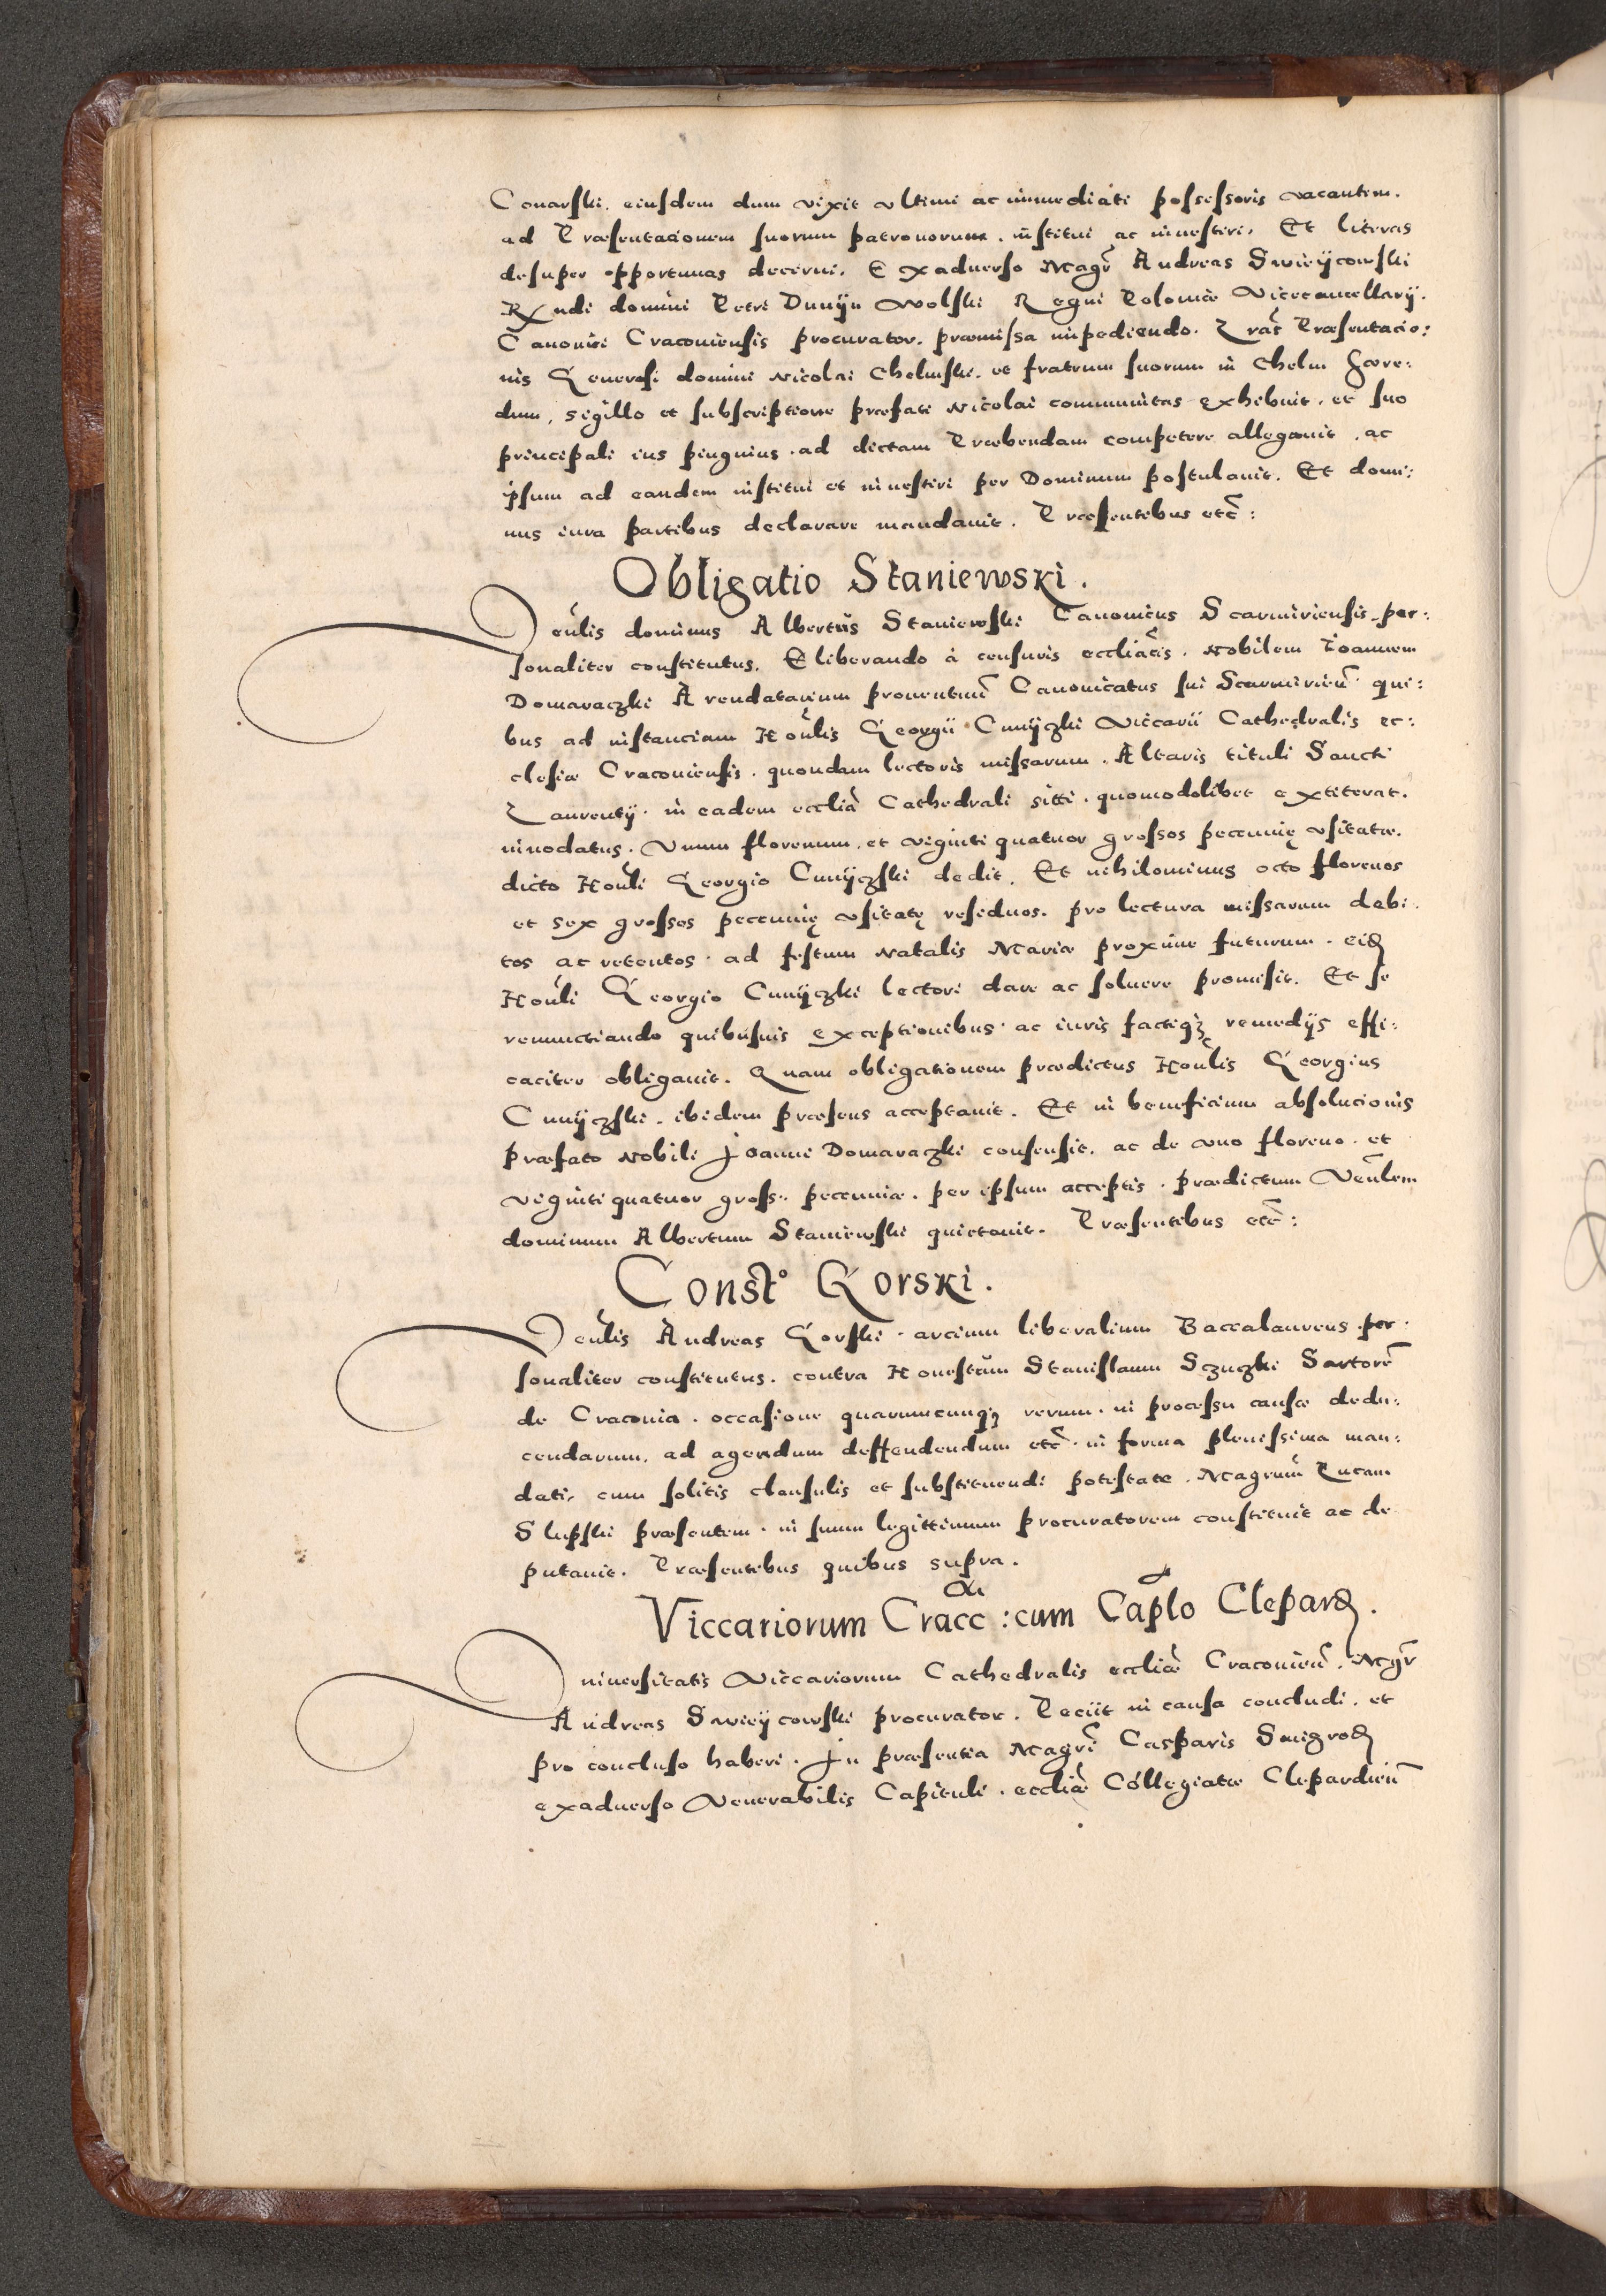 Conarski. eiusdem dum vixit vltimi ac immediati possessoris vacantem.
ad Præsentacionem suorum patronorum. institui ac inuestiri. Et literas
desuper opportunas decerni. Exaduerso Magr̃ Andreas Swieÿcowski
Rx̃ndi domini Petri Dunÿn Wolski Regni Poloniæ Vicecancellarÿ.
Canonici Cracouiensis procurator. præmissa impediendo. Lrãs Præsentacio:
nis Generosi domini Nicolai Chelmski. et fratrum suorum in Chelm hære:
dum, sigillo et subscriptione præfati Nicolai communitas exhibuit. et suo
principali ius pinguius ad dictam Præbendam competere allegauit, ac
ipsum ad eandem institui et inuestiri per Dominum postulauit. Et domi:
nus iura partibus declarare mandauit. Præsentibus etc̃:
Obligatio Staniewski.
Veñlis dominus Albertus Staniewski Canonicus Scarmiriensis. per:
sonaliter constitutus. Eliberando à censuris eccliãcis. Nobilem Ioannem
Domaraczki Arendatarium prouentuũ Canonicatus sui Scarmirieñ. qui:
bus ad instanciam Hoñlis Georgii Cunÿczki Viccarii Cathedralis ec:
clesiæ Cracouiensis. quondam lectoris missarum. Altaris tituli Sancti
Laurentÿ. in eadem eccliã Cathedrali sitti. quomodolibet extiterat.
innodatus. Vnum florenum. et viginti quatuor grossos pecunię vsitatæ.
dicto Hoñli Georgio Cunÿczski dedit. Et nihilominus octo florenos
et sex grossos pecunię vsitatę residuos. pro lectura missarum debi:
tos ac retentos. ad festum Natalis Mariæ proxime futurum. eid̃
Hoñli Georgio Cunÿczki lectori dare ac soluere promisit. Et se
renunctiando quibusuis exceptionibus. ac iuris factiqꝫ remedÿs effi:
caciter obligauit. Quam obligationem prædictus Hoñlis Georgius
Cunÿczski. ibidem præsens acceptauit. Et in beneficium absolucionis
præfato Nobili Joanni Domaraczki consensit. ac de vno floreno. et
viginti quatuor gross. pecuniæ. per ipsum acceptis. prædictum Veñlem
dominum Albertum Staniewski quietauit. Præsentibus etc̃:
Constᵒ Gorski.
Veñlis Andreas Gorski. arcium liberalium Baccalaureus per:
sonaliter constitutus. contra Honestum Stanislaum Sczuczki Sartorẽ
de Cracouia. occasione quarumcunqꝫ rerum. in processu causæ dedu:
cendarum. ad agendum deffendendum etc̃. in forma plenissima man:
dati, cum solitis clausulis et substituendi potestate. Magrum̃ Lucam
Slupski præsentem. in suum legittimum procuratorem constituit ac de
putauit. Præsentibus quibus supra.
Viccariorum Cracc: cum Caplo Clepard̃.
Vniuersitatis Viccariorum Cathedralis eccliæ̃ Cracouieñ. Mgr̃
Andreas Swieÿcowski procurator. Peciit in causa concludi. et
pro concluso haberi. In præsentia Magrĩ Casparis Smigrod̃
exaduerso Venerabilis Capituli. eccliæ̃ Collegiatæ Clepardieñ